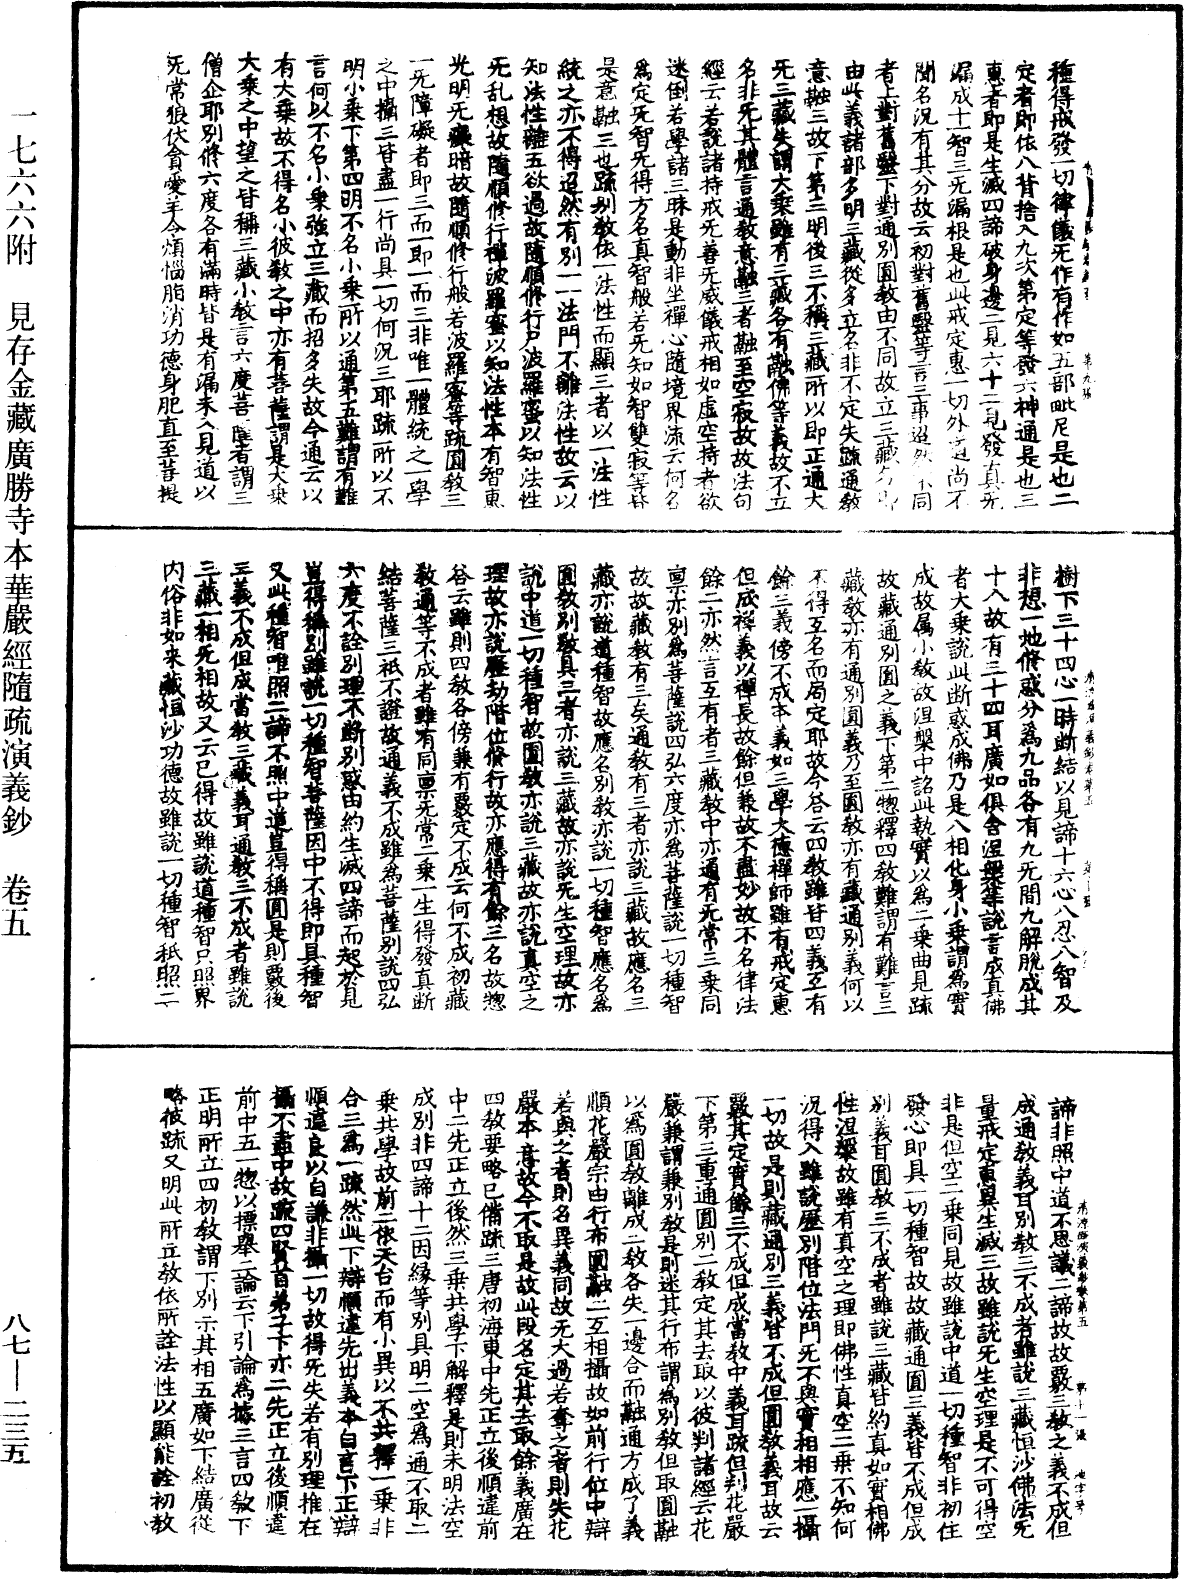 種得戒發一切律儀无作有作如五部毗尼是也二
定者即依八背捨入九次第定等發六神通是也三
惠者即是生滅四諦破身邊二見六十二見發真无
漏成十一智三无漏根是也此戒定惠一切外道尚不
聞名況有其分故云初對舊醫等言三事迢然不同
者上對舊醫下對通別圓教由不同故立三藏名也
由此義諸部多明三藏從多立名非不定失疏通教
意融三故下第三明後三不稱三藏所以即正通大
无三藏失謂大乘雖有三藏各有融佛等義故不立
名非无其體言通教意融三者融至空寂故故法句
經云若說諸持戒无善无威儀戒相如虛空持者欲
迷倒若學諸三昧是動非坐禪心隨境界流云何名
為定无智无得方名真智般若无知如智雙寂等皆
是意融三也疏別教依一法性而顯三者以一法性
統之亦不得迢然有別一一法門不離法性故云以
知法性離五欲過故隨順修行尸波羅蜜以知法性
无乱想故隨順修行禪波羅蜜以知法性本有智惠
光明无癡暗故隨順修行般若波羅蜜等疏圓教三
一无障礙者即三而一即一而三非唯一體統之一學
之中攝三皆盡一行尚具一切何況三耶疏所以不
明小乘下第四明不名小乘所以通第五難謂有難
言何以不名小乘強立三藏而招多失故今通云以
有大乘故不得名小彼教之中亦有菩薩謂是大乘
大乘之中望之皆稱三藏小教言六度菩薩者謂三
僧企耶別修六度各有滿時皆是有漏未入見道以
无常狼伏貪愛羊令煩惱脂消功德身肥直至菩提
樹下三十四心一時斷結以見諦十六心八忍八智及
非想一地修惑分為九品各有九无間九解脫成其
十八故有三十四耳廣如俱舍涅槃等說言成真佛
者大乘說此斷惑成佛乃是八相化身小乘謂為實
成故属小教故涅槃中詺此執實以為二乘曲見疏
故藏通別圓之義下第二惣釋四教難謂有難言三
藏教亦有通別圓義乃至圓教亦有藏通別義何以
不得互名而局定耶故今答云四教雖皆四義互有
餘三義傍不成本義如三學大德禪師雖有戒定惠
但成禪義以禪長故餘但兼故不盡妙故不名律法
餘二亦然言互有者三藏教中亦通有无常三乘同
稟亦別為菩薩說四弘六度亦為菩薩說一切種智
故故藏教有三矣通教有三者亦說三藏故應名三
藏亦說道種智故應名別教亦說一切種智應名為
圓教別教具三者亦說三藏故亦說无生空理故亦
說中道一切種智故圓教亦說三藏故亦說真空之
理故亦說歷劫階位修行故亦應得有餘三名故惣
谷云雖則四教各傍兼有覈定不成云何不成初藏
教通等不成者雖有同稟无常二乘一生得發真斷
結菩薩三祇不證故通義不成雖為菩薩別說四弘
六度不詮別理不斷別惑由約生滅四諦而起於見
豈得稱別雖說一切種智菩薩因中不得即具種智
又此種智唯照二諦不照中道豈得稱圓是則覈後
三義不成但成當教三藏義耳通教三不成者雖說
三藏一相无相故又云已得故雖說道種智只照界
内俗非如来藏恒沙功德故雖說一切種智祇照二
諦非照中道不思議二諦故故覈三教之義不成但
成通教義耳別教三不成者雖說三藏恒沙佛法无
量戒定惠異生滅三故雖說无生空理是不可得空
非是但空二乘同見故雖說中道一切種智非初住
發心即具一切種智故故藏通圓三義皆不成但成
別義耳圓教三不成者雖說三藏皆約真如實相佛
性涅槃故雖有真空之理即佛性真空二乘不知何
況得入雖說歷別階位法門无不與實相相應一攝
一切故是則藏通別三義皆不成但圓教義耳故云
覈其定實餘三不成但成當教中義耳疏但判花嚴
下第三重通圓別二教定其去取以彼判諸經云花
嚴兼謂兼別教是則迷其行布謂為別教但取圓融
以為圓教離成二教各失一邊合而融通方成了義
順花嚴宗由行布圓融二互相攝故如前行位中辯
若與之者則名異義同故无大過若奪之者則失花
嚴本意故今不取是故此段名定其去取餘義廣在
四教要略已備疏三唐初海東中先正立後順違前
中二先正立後然三乘共學下解釋是則未明法空
成別非四諦十二因緣等別具明二空為通不取二
乘共學故前二依天台而有小異以不共釋一乘非
合三為一疏然此下辯順違先出義本自言下正辯
順違良以自謙非攝一切故得无失若有別理推在
攝不盡中故疏四賢首弟子下亦二先正立後順違
前中五一惣以標舉二論云下引論為據三言四教下
正明所立四初教謂下別示其相五廣如下結廣從
略彼疏又明此所立教依所詮法性以顯能詮初教
一七六六附　見存金藏廣勝寺本華嚴經隨疏演義鈔　卷五
八七—二三五